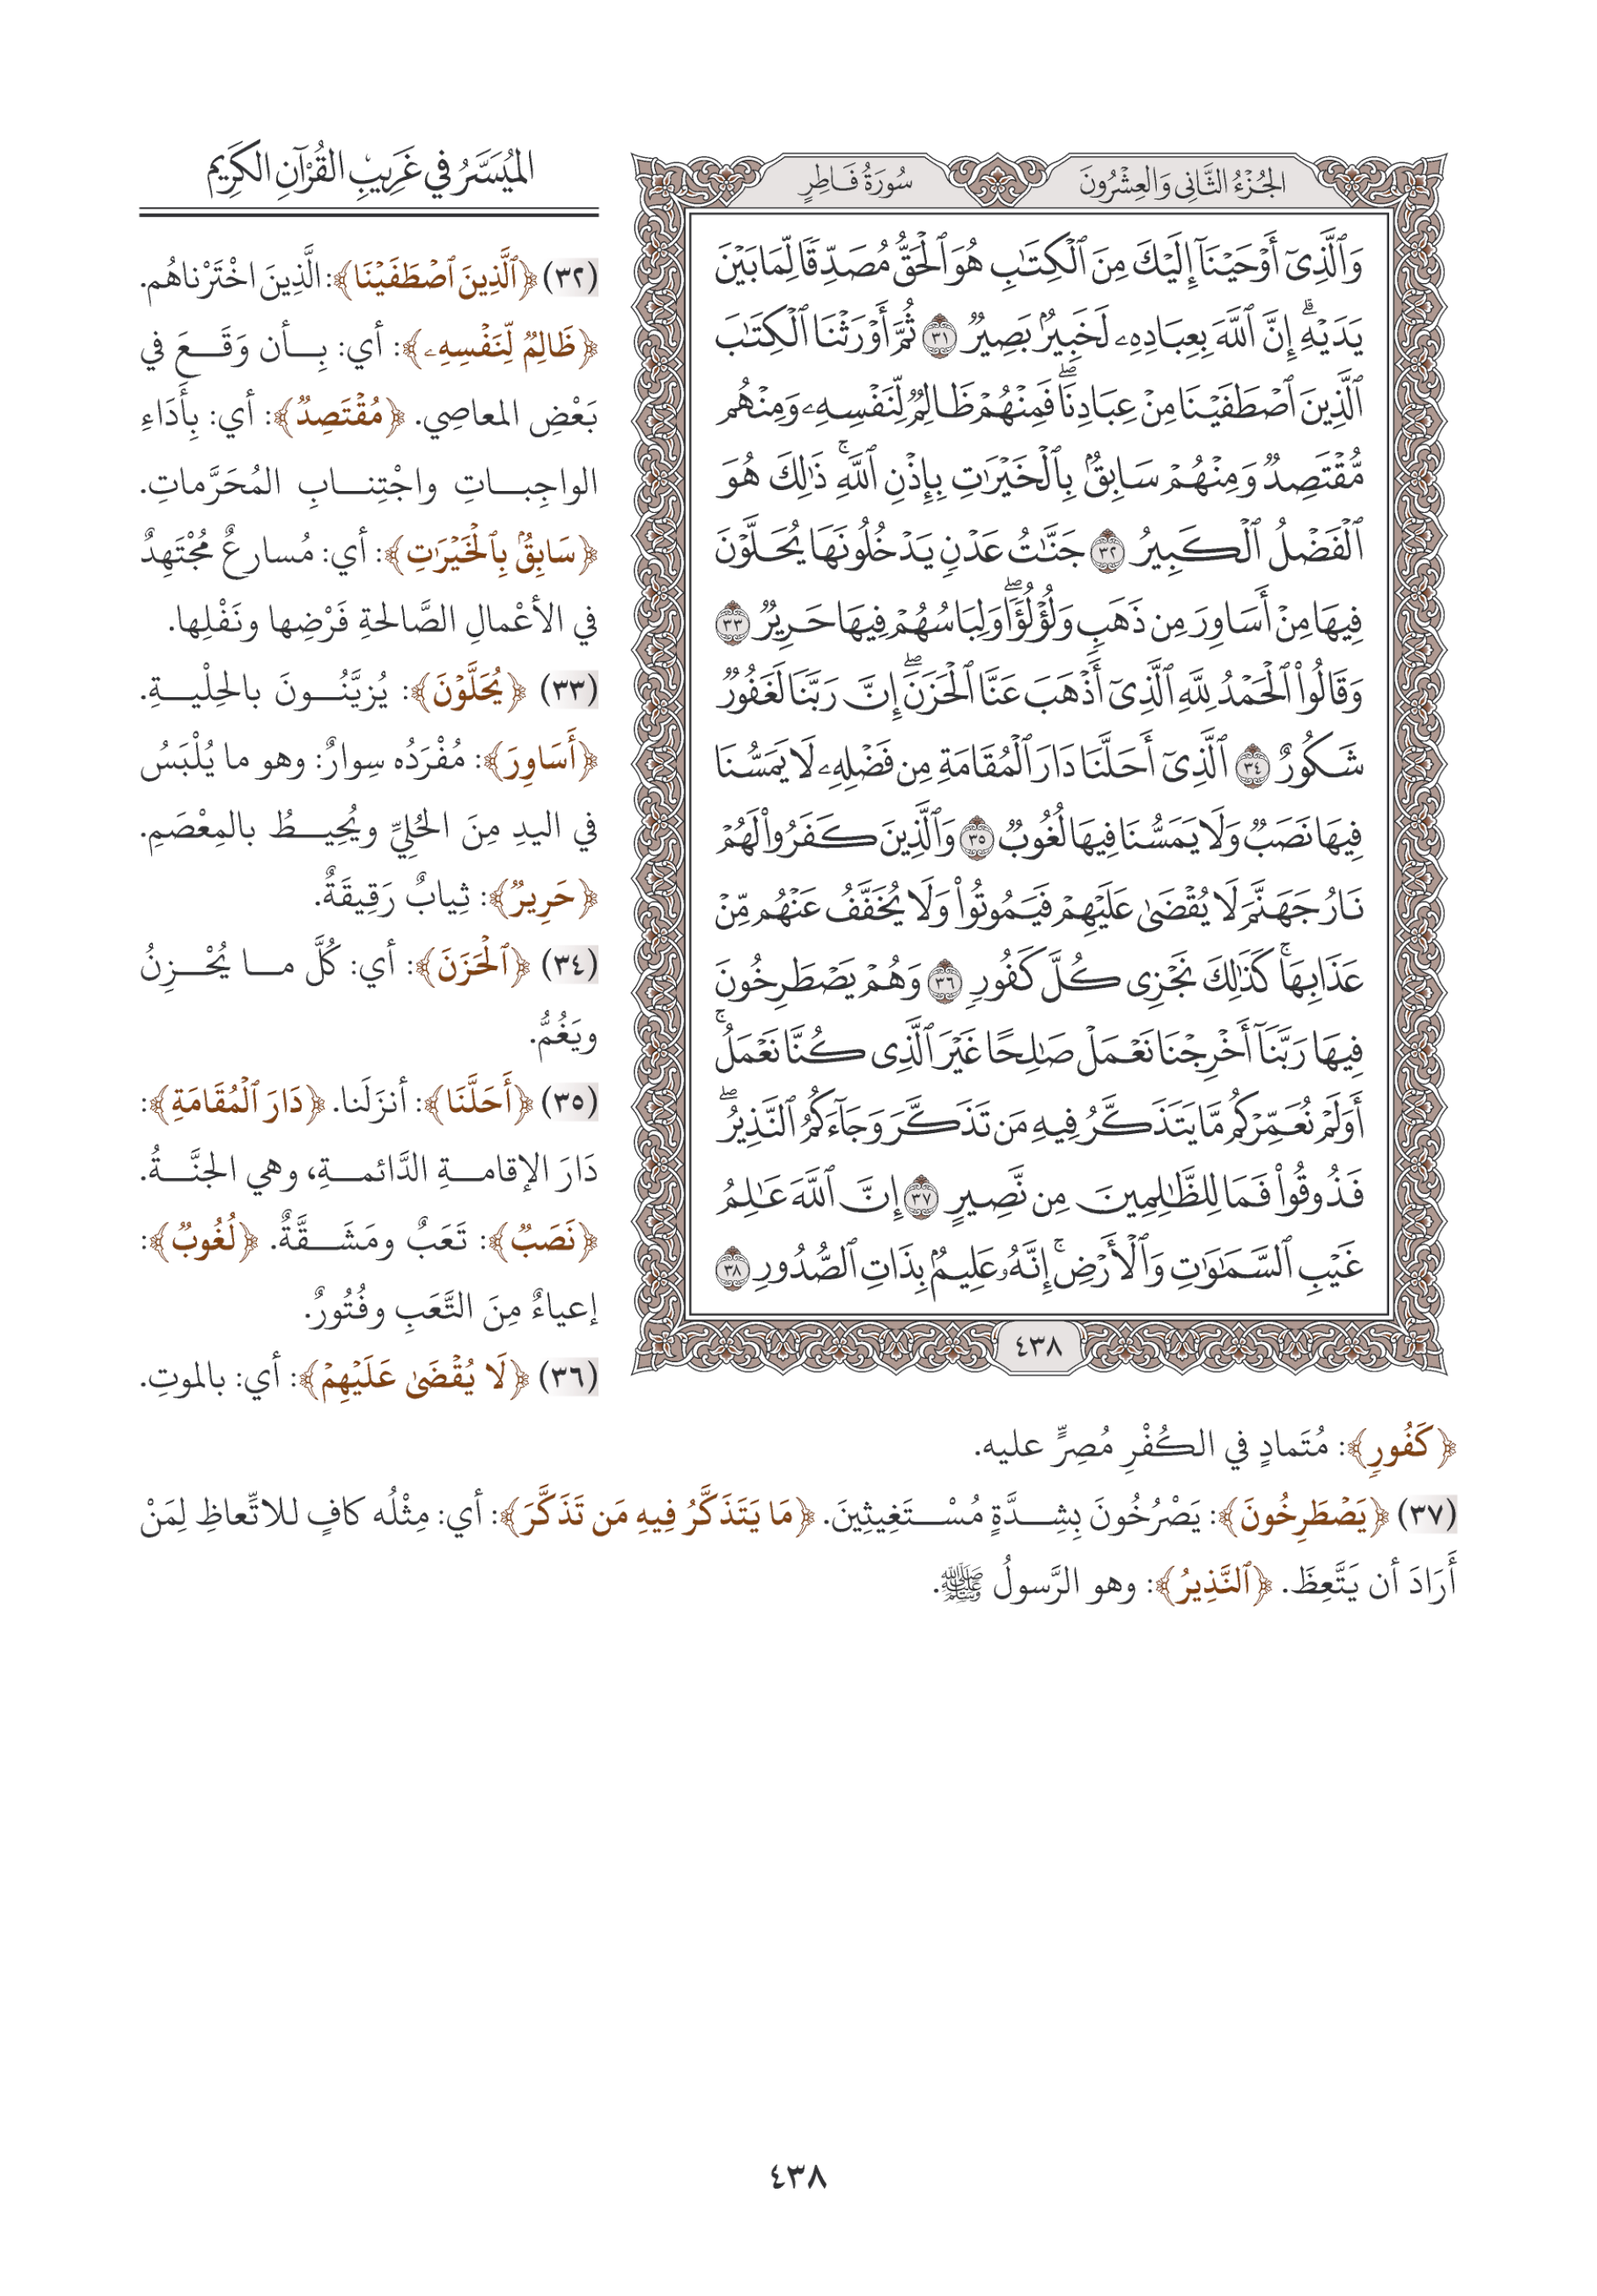 الجُزْءُ الثَّانِي وَالعِشْرُونَ
سُورَةُ فَاطِرٍ
وَٱلَّذِىٓ أَوۡحَيۡنَآ إِلَيۡكَ مِنَ ٱلۡكِتَٰبِ هُوَ ٱلۡحَقُّ مُصَدِّقٗا لِّمَا بَيۡنَ
يَدَيۡهِۗ إِنَّ ٱللَّهَ بِعِبَادِهِۦ لَخَبِيرُۢ بَصِيرٞ ٣١ ثُمَّ أَوۡرَثۡنَا ٱلۡكِتَٰبَ
ٱلَّذِينَ ٱصۡطَفَيۡنَا مِنۡ عِبَادِنَاۖ فَمِنۡهُمۡ ظَالِمٞ لِّنَفۡسِهِۦ وَمِنۡهُم
مُّقۡتَصِدٞ وَمِنۡهُمۡ سَابِقُۢ بِٱلۡخَيۡرَٰتِ بِإِذۡنِ ٱللَّهِۚ ذَٰلِكَ هُوَ
ٱلۡفَضۡلُ ٱلۡكَبِيرُ ٣٢ جَنَّٰتُ عَدۡنٖ يَدۡخُلُونَهَا يُحَلَّوۡنَ
فِيهَا مِنۡ أَسَاوِرَ مِن ذَهَبٖ وَلُؤۡلُؤٗاۖ وَلِبَاسُهُمۡ فِيهَا حَرِيرٞ ٣٣
وَقَالُواْ ٱلۡحَمۡدُ لِلَّهِ ٱلَّذِىٓ أَذۡهَبَ عَنَّا ٱلۡحَزَنَۖ إِنَّ رَبَّنَا لَغَفُورٞ
شَكُورٌ ٣٤ ٱلَّذِىٓ أَحَلَّنَا دَارَ ٱلۡمُقَامَةِ مِن فَضۡلِهِۦ لَا يَمَسُّنَا
فِيهَا نَصَبٞ وَلَا يَمَسُّنَا فِيهَا لُغُوبٞ ٣٥ وَٱلَّذِينَ كَفَرُواْ لَهُمۡ
نَارُ جَهَنَّمَ لَا يُقۡضَىٰ عَلَيۡهِمۡ فَيَمُوتُواْ وَلَا يُخَفَّفُ عَنۡهُم مِّنۡ
عَذَابِهَاۚ كَذَٰلِكَ نَجۡزِى كُلَّ كَفُورٖ ٣٦ وَهُمۡ يَصۡطَرِخُونَ
فِيهَا رَبَّنَآ أَخۡرِجۡنَا نَعۡمَلۡ صَٰلِحًا غَيۡرَ ٱلَّذِى كُنَّا نَعۡمَلُۚ
أَوَلَمۡ نُعَمِّرۡكُم مَّا يَتَذَكَّرُ فِيهِ مَن تَذَكَّرَ وَجَآءَكُمُ ٱلنَّذِيرُۖ
فَذُوقُواْ فَمَا لِلظَّٰلِمِينَ مِن نَّصِيرٍ ٣٧ إِنَّ ٱللَّهَ عَٰلِمُ
غَيۡبِ ٱلسَّمَٰوَٰتِ وَٱلۡأَرۡضِۚ إِنَّهُۥ عَلِيمُۢ بِذَاتِ ٱلصُّدُورِ ٣٨
٤٣٨
المُيَسَّرُ في غَرِيبِ القُرْآنِ الكَرِيم
(٣٢) ﴿ٱلَّذِينَ ٱصۡطَفَيۡنَا﴾: الَّذِينَ اخْتَرْناهُم.
﴿ظَالِمٞ لِّنَفۡسِهِۦ﴾: أي: بِأن وَقَعَ في
بَعْضِ المعاصِي. ﴿مُقۡتَصِدٞ﴾: أي: بِأَدَاءِ
الواجِباتِ واجْتِنابِ المُحَرَّماتِ.
﴿سَابِقُۢ بِٱلۡخَيۡرَٰتِ﴾: أي: مُسارعٌ مُجْتَهِدٌ
في الأعْمالِ الصَّالحةِ فَرْضِها ونَفْلِها.
(٣٣) ﴿يُحَلَّوۡنَ﴾: يُزيَّنُونَ بالحِلْيةِ.
﴿أَسَاوِرَ﴾: مُفْرَدُه سِوارٌ: وهو ما يُلْبَسُ
في اليدِ مِنَ الحُلِيِّ ويُحِيطُ بالمِعْصَمِ.
﴿حَرِيرٞ﴾: ثِيابٌ رَقِيقَةٌ.
(٣٤) ﴿ٱلۡحَزَنَ﴾: أي: كُلَّ ما يُحْزِنُ
ويَغُمُّ.
(٣٥) ﴿أَحَلَّنَا﴾: أنزَلَنا. ﴿دَارَ ٱلۡمُقَامَةِ﴾:
دَارَ الإقامةِ الدَّائمةِ، وهي الجنَّةُ.
﴿نَصَبٞ﴾: تَعَبٌ ومَشَقَّةٌ. ﴿لُغُوبٞ﴾:
إعياءٌ مِنَ التَّعَبِ وفُتُورٌ.
(٣٦) ﴿لَا يُقۡضَىٰ عَلَيۡهِمۡ﴾: أي: بالموتِ.
﴿كَفُورٖ﴾: مُتَمادٍ في الكُفْرِ مُصِرٍّ عليه.
(٣٧) ﴿يَصۡطَرِخُونَ﴾: يَصْرُخُونَ بِشِدَّةٍ مُسْتَغِيثِينَ. ﴿مَا يَتَذَكَّرُ فِيهِ مَن تَذَكَّرَ﴾: أي: مِثْلُه كافٍ للاتِّعاظِ لِمَنْ
أَرَادَ أن يَتَّعِظَ. ﴿ٱلنَّذِيرُ﴾: وهو الرَّسولُ ﷺ.
٤٣٨